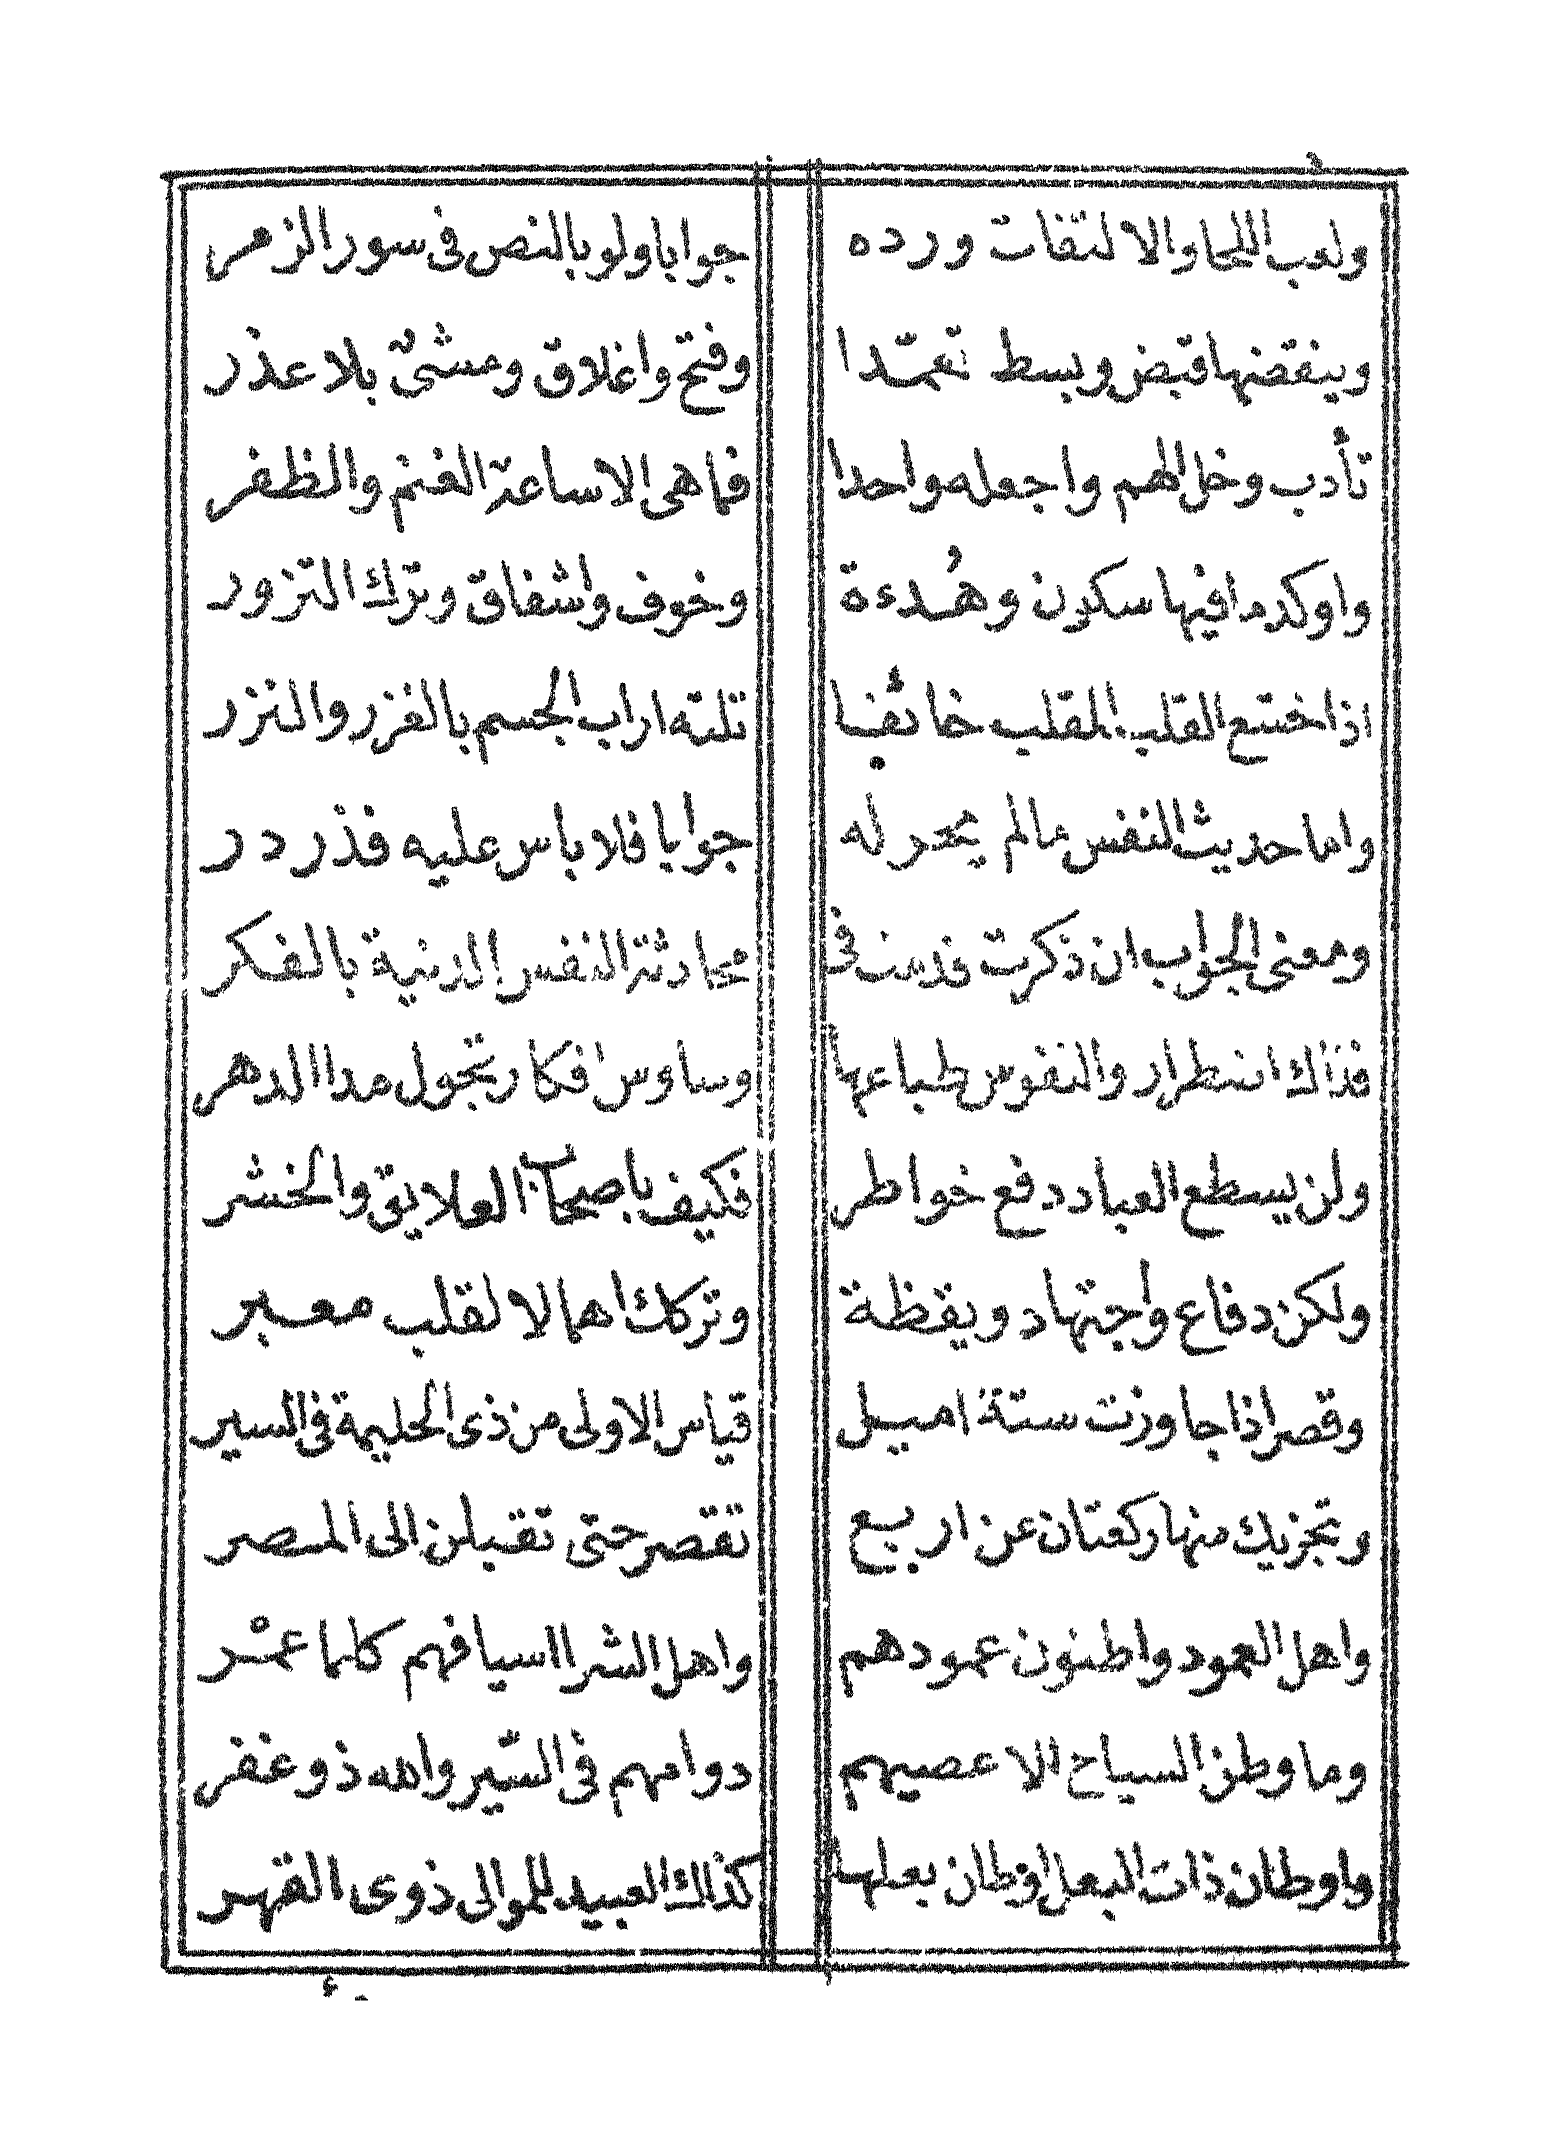 ولعب اللحا والالتفات ورده جوابا ولو بالنص فى سور الزمر
وينقضها قبض وبسط تعمّدا وفتح واغلاق ومشىٌ بلا عذر
تأدب وخل الهم واجعله واحدا فما هى الا ساعة الغنم والظفر
واوكد ما فيها سكون وهُدءة وخوف واشفاق وترك التزور
اذا خشع القلب المقلب خائفا تلته اراب الجسم بالغزر والنزر
واما حديث النفس مالم يحرله جوابا فلا باس عليه فذر در
ومعنى الجواب ان ذكرت فدست فى محادثة النفس الدنية بالفكر
فذاك انتظرار والنفوس طباعها وساوس افكار تجول مدا الدهر
ولن يسطع العباد دفع خواطر فكيف باصحاب العلايق والخشر
ولكن دفاع واجتهاد ويقظة وتركك اهمالا لقلب معبر
وقصر اذا جاوزت ستة اميل قياس الاولى من ذى الحليمة فى السير
وتجزيك منها ركعتان عن اربع تقصر حتى تقبلن الى المصر
واهل العمود واطنون عمودهم واهل الشرا اسيافهم كلما عمْر
وما وطن السياح الا عصيهم دوامهم فى السّير والله ذو غفر
واوطان ذات البعل اوطان بعلها كذاك العبيد للموالى ذوى القهر